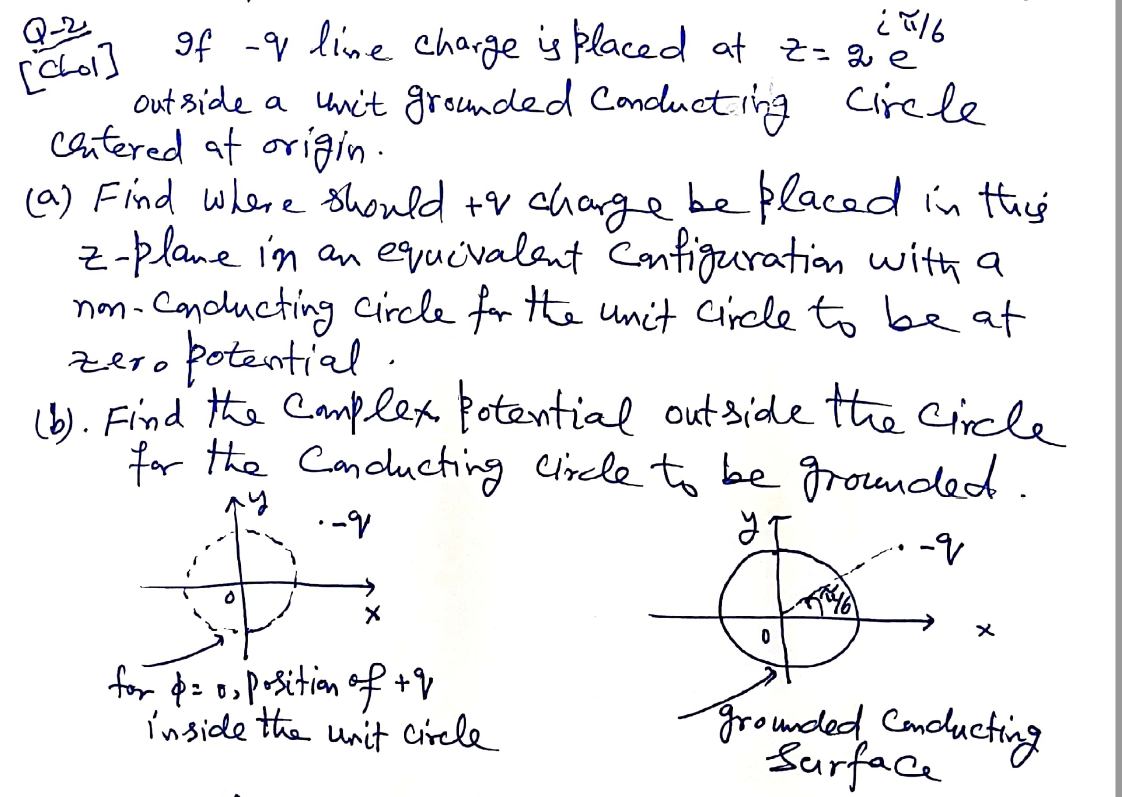 Q-2
[CLO1]
If -q line charge is placed at z = 2 e^{iπ/6}
outside a unit grounded Conducting Circle
centered at origin.
(a) Find where should +q charge be placed in this
z-plane in an equivalent Configuration with a
non-Conducting circle for the unit circle to be at
zero potential.
(b). Find the Complex Potential outside the Circle
for the Conducting Circle to be grounded.
y
.-q
0
x
for ϕ = 0, position of +q
inside the unit circle
y
.-q
π/6
0
x
grounded Conducting
Surface